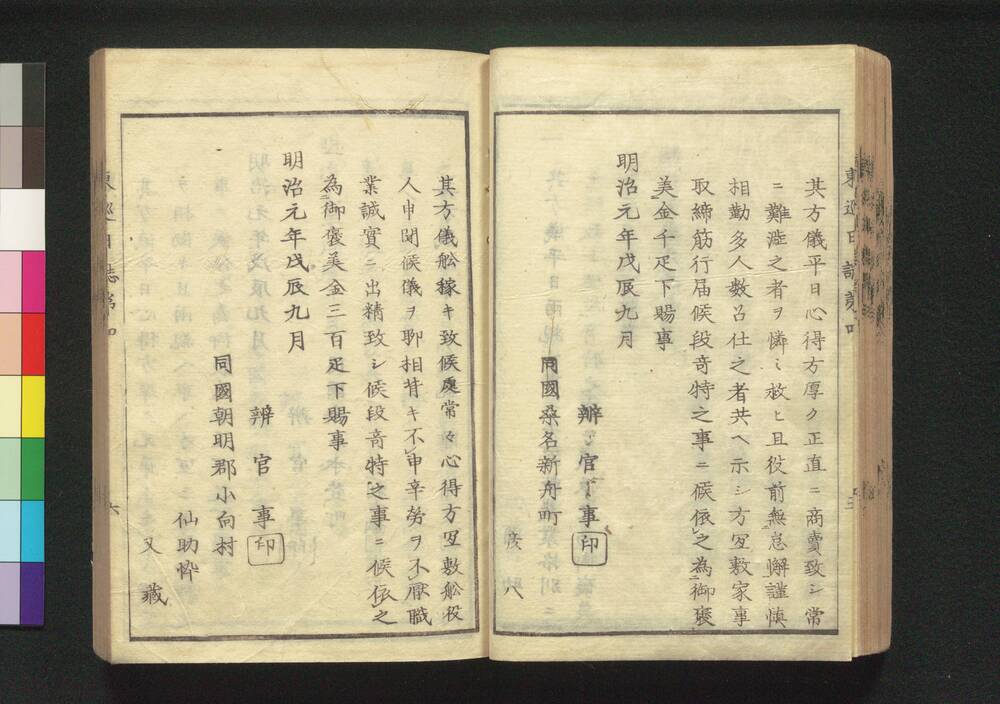 其方儀平日心得方厚ク正直ニ商賣致シ常
ニ難澁之者ヲ憐ミ救ヒ且役前無怠懈謹慎
相勤多人數召仕之者共ヘ示シ方宜敷家事
取締筋行届候段竒特之事ニ候依之為御褒
美金千疋下賜事
明治元年戊辰九月
辨官事 印
同國桑名新舟町
彦八
其方儀舩稼キ致候處常々心得方宜敷舩役
人申聞候儀ヲ聊相背キ不申辛勞ヲ不厭職
業誠實ニ出精致シ候段竒特之事ニ候依之
為御褒美金三百疋下賜事
明治元年戊辰九月
辨官事 印
同國朝明郡小向村
仙助忰
又藏